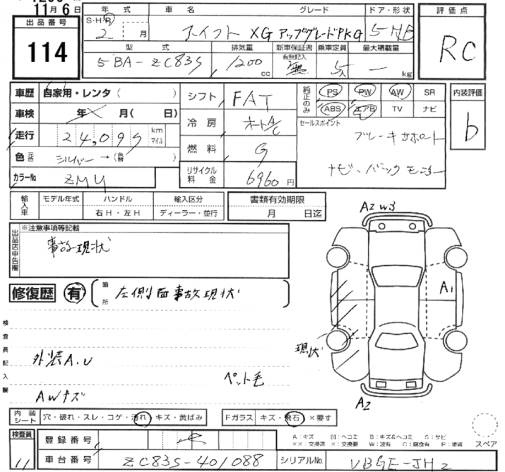 11月6日
出品番号
114
年式 車名 グレード ドア・形状
S・H・R 2 月 スイフト XG アップグレードPKG 5HB
型式 排気量 新車保証書 乗車定員 最大積載量
5BA-ZC83S 1200cc 無 5人 kg
評価点
RC
車歴 自家用・レンタ( )
シフト FAT
車検 年 月( 日)
冷房 オートA/C
走行 24,095 km マイル
燃料 G
色 シルバー→
リサイクル料金 6960円
カラーNo ZMU
純正のみ PS PW AW SR
ABS エアB TV ナビ
内装評価
b
セールスポイント
ブレーキサポート
ナビ・バックモニター
輸入車 モデル年式 ハンドル 輸入区分
月 右H・左H ディーラー・並行
書類有効期限
月 日迄
※注意事項等記載
出品店申告欄
事故現状
修復歴 有 箇所 左側面事故現状
検査員記入欄
外装A.U
ペット毛
AWキズ
A2 W3
A1
現状
A2
内装シート 穴・破れ・スレ・コゲ・汚れ・キズ・黄ばみ
Fガラス キズ・飛石・×要す
スペア
検査員 11
登録番号
車台番号 ZC83S-401088
シリアルNo VBGE-JH2